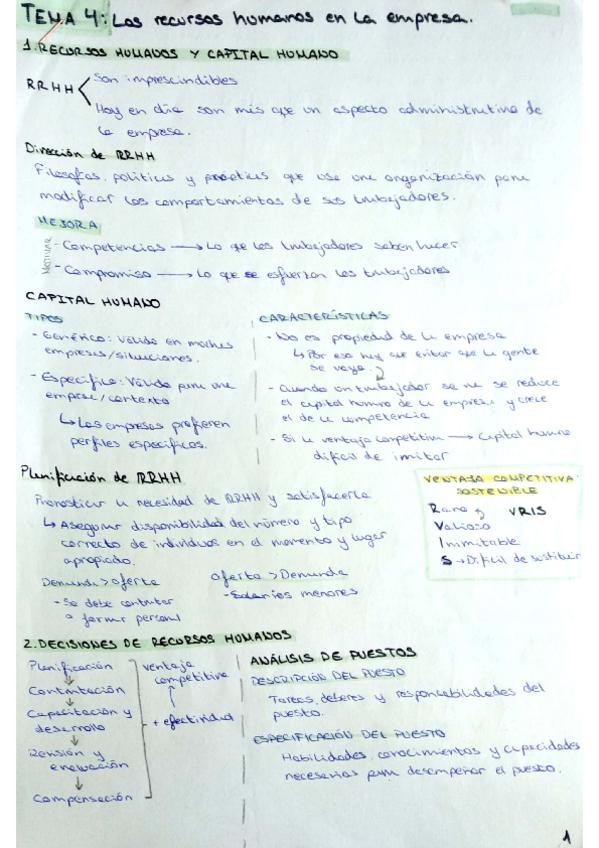 TEMA 4: Los recursos humanos en la empresa.
1. RECURSOS HUMANOS Y CAPITAL HUMANO
RRHH
Son imprescindibles
Hoy en día son más que un aspecto administrativo de
la empresa.
Dirección de RRHH
Filosofías, políticas y prácticas que usa una organización para
modificar los comportamientos de sus trabajadores.
MEJORA
- Competencias → Lo que los trabajadores saben hacer
- Compromiso → Lo que se esfuerzan los trabajadores
CAPITAL HUMANO
TIPOS
- Genérico: Válido en muchas
empresas/situaciones.
- Específico: Válido para una
empresa/contexto
↳ Las empresas prefieren
perfiles específicos.
CARACTERÍSTICAS
- No es propiedad de la empresa
↳ Por eso hay que evitar que la gente
se vaya.
- Cuando un trabajador se va se reduce
el capital humano de la empresa y crece
el de la competencia
- Si la ventaja competitiva → Capital humano
difícil de imitar
Planificación de RRHH
Pronosticar la necesidad de RRHH y satisfacerla
↳ Asegurar disponibilidad del número y tipo
correcto de individuos en el momento y lugar
apropiado.
Demanda > oferta
- Se debe contratar
o formar personal
oferta > Demanda
- Salarios menores
VENTAJA COMPETITIVA
SOSTENIBLE
Rara y VRIS
Valiosa
Inimitable
S → Difícil de sustituir
2. DECISIONES DE RECURSOS HUMANOS
Planificación
↓
Contratación
↓
Capacitación y
desarrollo
↓
Revisión y
evaluación
↓
Compensación
ventaja
competitiva
↑
+ efectividad
ANÁLISIS DE PUESTOS
DESCRIPCIÓN DEL PUESTO
Tareas, deberes y responsabilidades del
puesto.
ESPECIFICACIÓN DEL PUESTO
Habilidades, conocimientos y capacidades
necesarias para desempeñar el puesto.
1